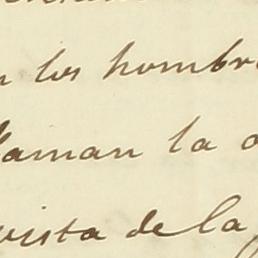 los hombr
llaman la
vista de la